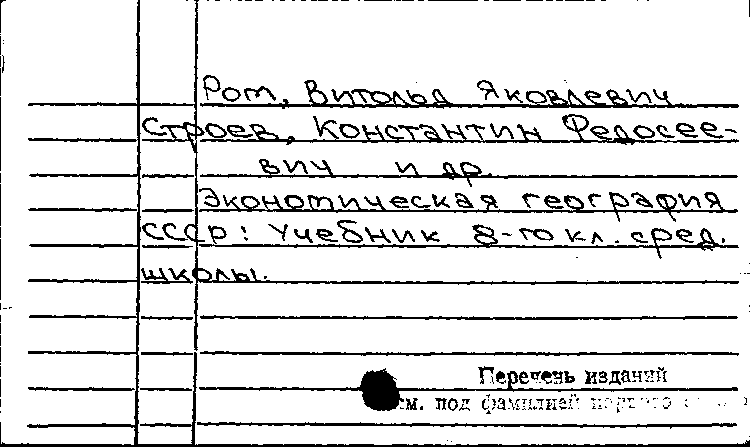 Ром, Витольд Яковлевич
Строев, Константин Федосее-
вич и др.
Экономическая география
СССР: Учебник 8-го кл. сред.
школы.
Перечень изданий
см. под фамилией первого